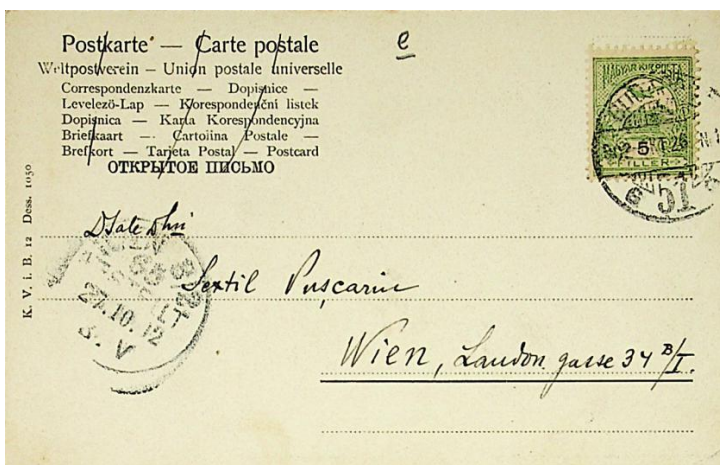 Postkarte — Carte postale
e
Weltpostverein – Union postale universelle
Correspondenzkarte — Dopisnice —
Levelező-Lap — Korespondenční listek
Dopisnica — Karta Korespondencyjna
Briefkaart — Cartolina Postale —
Brefkort — Tarjeta Postal — Postcard
ОТКРЫТОЕ ПИСЬМО
MAGYAR KIR. POSTA
5
FILLER
51
K. V. i. B. 12 Dess. 1030
WIEN
65
BESTELLT
27.10.12
8. V
Sextil Pușcariu
Wien, Laudon gasse 34 B/I.